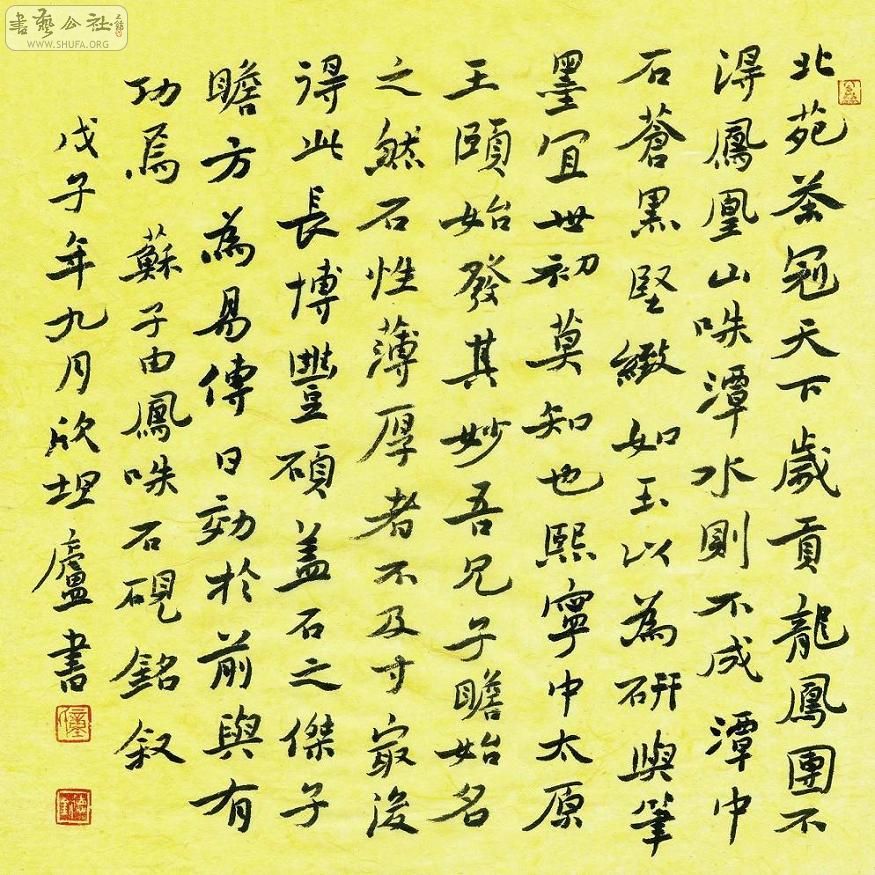 書藝公社
WWW.SHUFA.ORG
北苑茶冠天下歲貢龍鳳團不
得鳳凰山咮潭水則不成潭中
石蒼黑堅緻如玉以為研與筆
墨宜世初莫知也熙寧中太原
王頤始發其妙吾兄子瞻始名
之然石性薄厚者不及寸最後
得此長博豐碩蓋石之傑子
瞻方為易傳日效於前與有
功焉 蘇子由鳳咮石硯銘叙
戊子年九月欣坦廬書